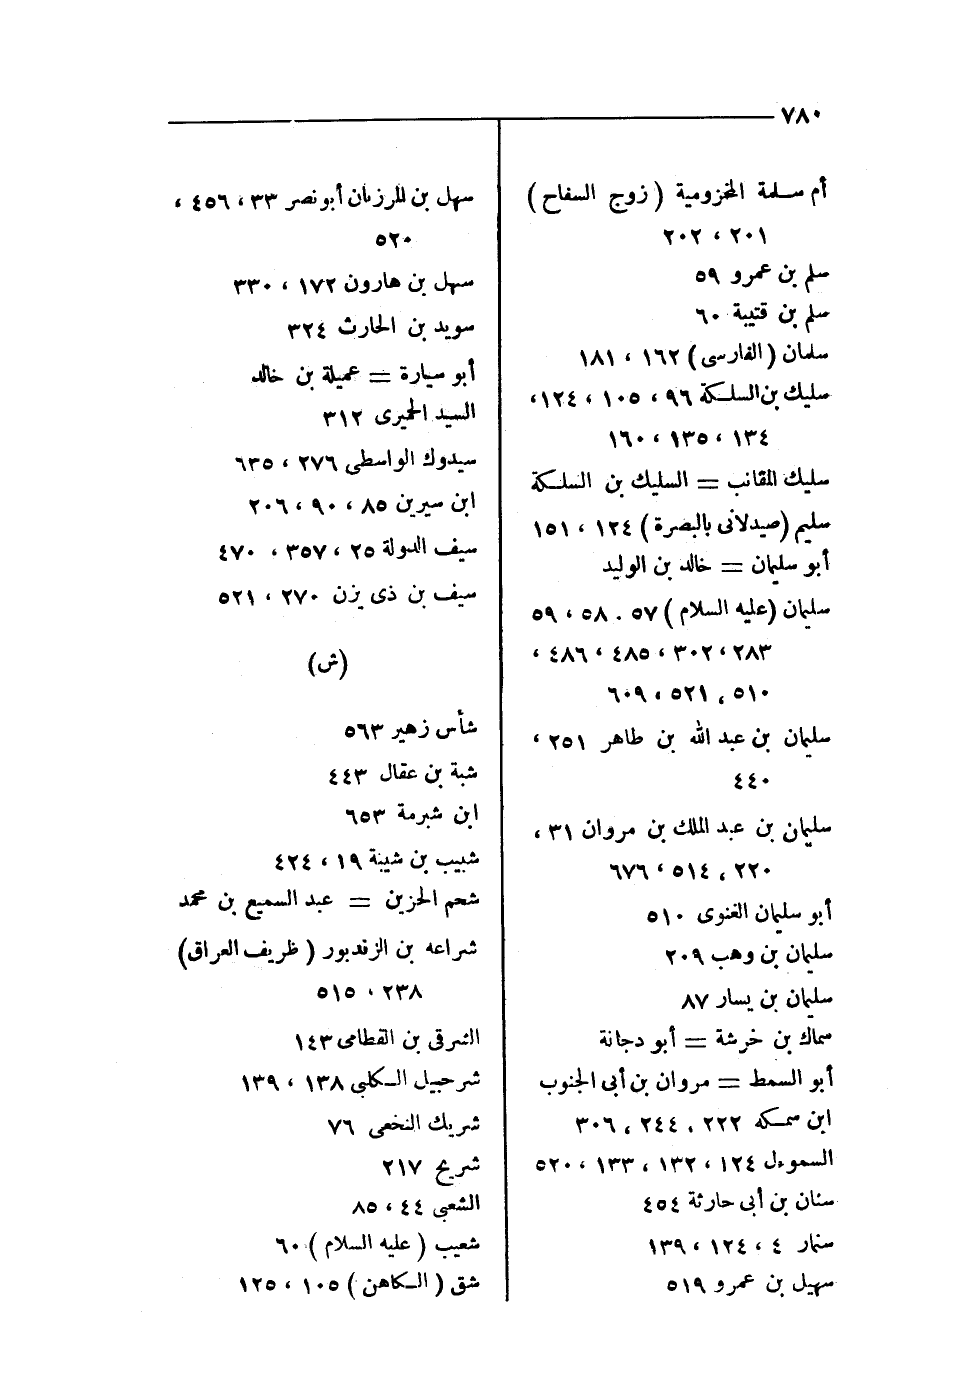 ٧٨٠
أم سلمة المخزومية ( زوج السفاح )
٢٠١ ، ٢٠٢
سلم بن عمرو ٥٩
سلم بن قتيبة ٦٠
سلمان ( الفارسى ) ١٦٢ ، ١٨١
سليك بن السلكة ٩٦ ، ١٠٥ ، ١٢٤ ،
١٣٤ ، ١٣٥ ، ١٦٠
سليك المقانب = السليك بن السلكة
سليم ( صيدلانى بالبصرة ) ١٢٤ ، ١٥١
أبو سليمان = خالد بن الوليد
سليمان ( عليه السلام ) ٥٧ . ٥٨ ، ٥٩
٢٨٣ ، ٣٠٢ ، ٤٨٥ ، ٤٨٦ ،
٥١٠ ، ٥٢١ ، ٦٠٩
سليمان بن عبد الله بن طاهر ٢٥١ ،
٤٤٠
سليمان بن عبد الملك بن مروان ٣١ ،
٢٢٠ ، ٥١٤ ، ٦٧٦
أبو سليمان الغنوى ٥١٠
سليمان بن وهب ٢٠٩
سليمان بن يسار ٨٧
سماك بن خرشة = أبو دجانة
أبو السمط = مروان بن أبى الجنوب
ابن سمكه ٢٢٢ ، ٢٤٤ ، ٣٠٦
السموءل ١٢٤ ، ١٣٢ ، ١٣٣ ، ٥٢٠
سنان بن أبى حارثة ٤٥٤
سنمار ٤ ، ١٢٤ ، ١٣٩
سهيل بن عمرو ٥١٩
سهل بن المرزبان أبو نصر ٣٣ ، ٤٥٦ ،
٥٢٠
سهل بن هارون ١٧٢ ، ٣٣٠
سويد بن الحارث ٣٢٤
أبو سيارة = عميلة بن خالد
السيد الحميرى ٣١٢
سيدوك الواسطى ٢٧٦ ، ٦٣٥
ابن سيرين ٨٥ ، ٩٠ ، ٢٠٦
سيف الدولة ٢٥ ، ٣٥٧ ، ٤٧٠
سيف بن ذى يزن ٢٧٠ ، ٥٢١
(ش)
شأس زهير ٥٦٣
شبة بن عقال ٤٤٣
ابن شبرمة ٦٥٣
شبيب بن شيبة ١٩ ، ٤٢٤
شحم الحزين = عبد السميع بن محمد
شراعه بن الزندبور ( ظريف العراق )
٢٣٨ ، ٥١٥
الشرقى بن القطامى ١٤٣
شرحبيل الكلبى ١٣٨ ، ١٣٩
شريك النخعى ٧٦
شريح ٢١٧
الشعبى ٤٤ ، ٨٥
شعيب ( عليه السلام ) ٦٠
شق ( الكاهن ) ١٠٥ ، ١٢٥